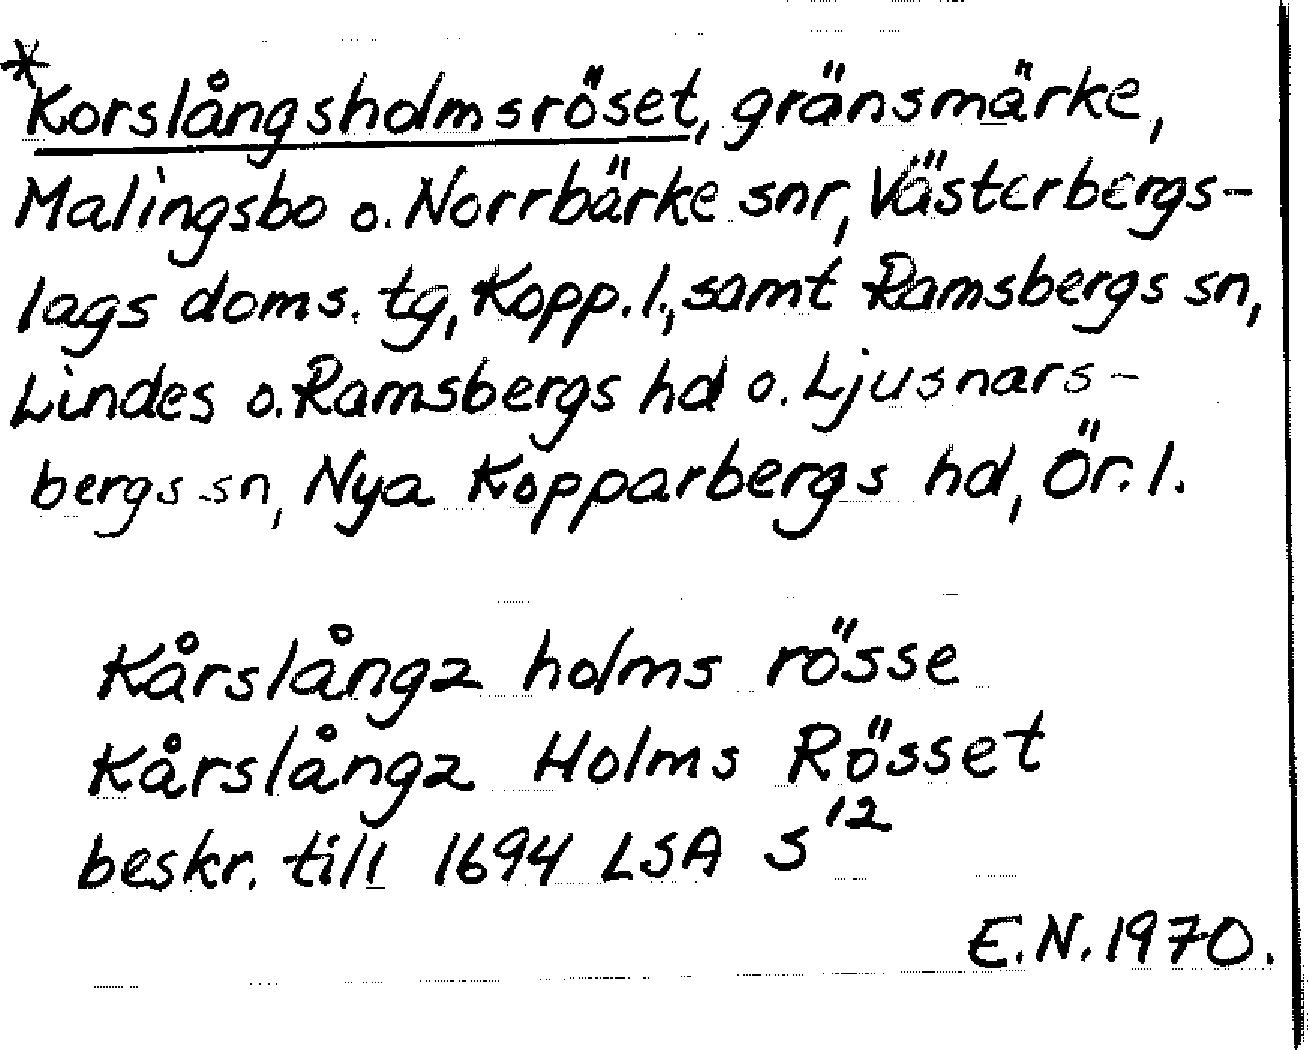 *Korslångsholmsröset, gränsmärke,
Malingsbo o. Norrbärke snr, Västerbergs-
lags doms. tg, Kopp. l., samt Ramsbergs sn,
Lindes o. Ramsbergs hd o. Ljusnars-
bergs sn, Nya Kopparbergs hd, Ör. l.
Kårslångz holms rösse
Kårslångz Holms Rösset
beskr. till 1694 LSA S¹²
E.N. 1970.